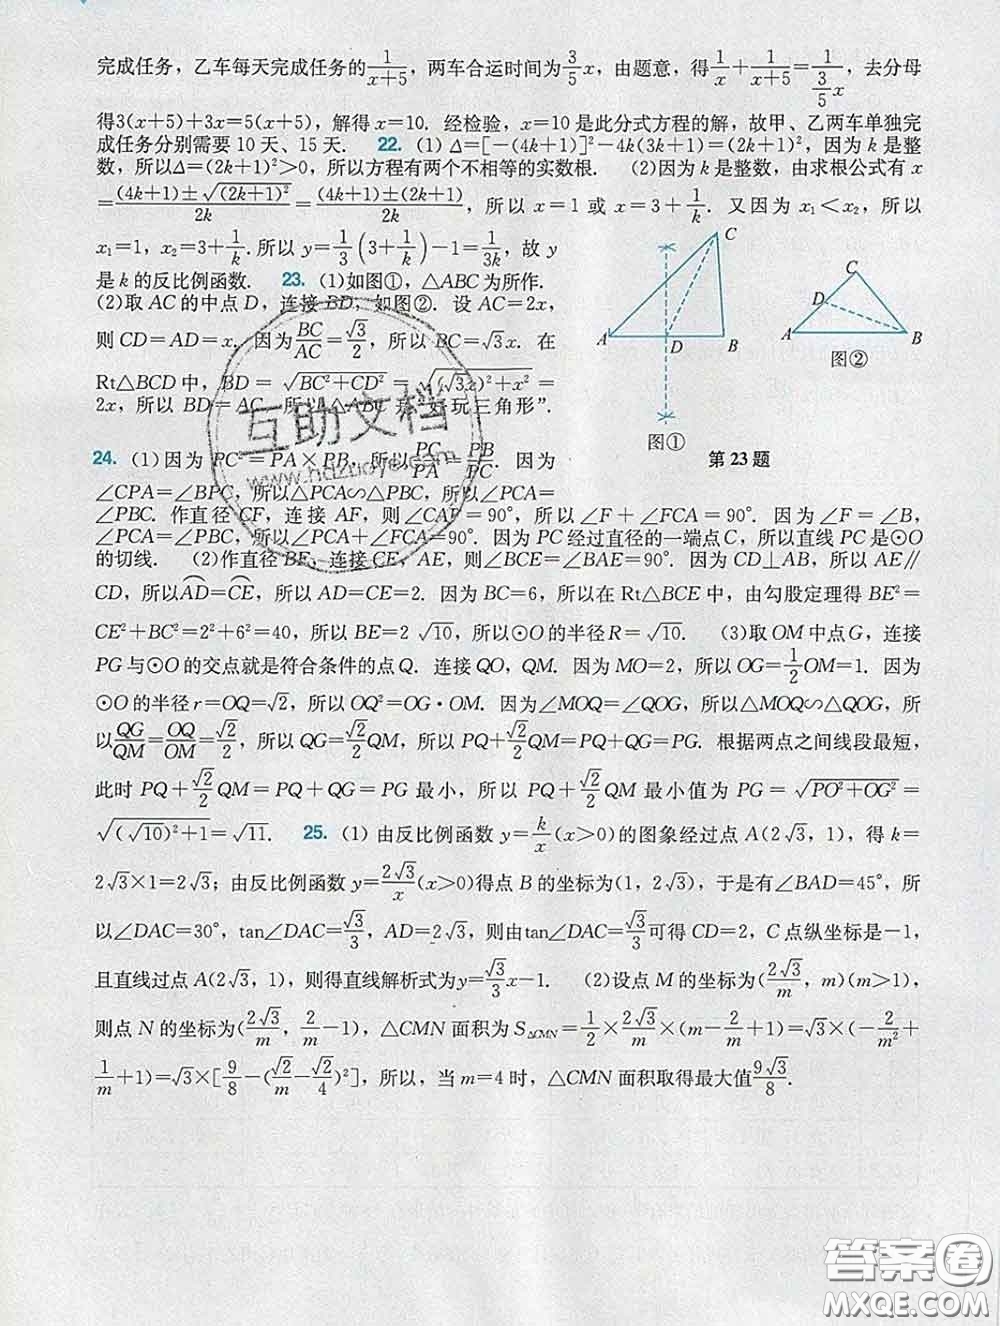 完成任务，乙车每天完成任务的1/(x+5)，两车合运时间为3/5x，由题意，得1/x+1/(x+5)=1/(3/5x)，去分母
得3(x+5)+3x=5(x+5)，解得x=10．经检验，x=10是此分式方程的解，故甲、乙两车单独完
成任务分别需要10天、15天． 22. (1) Δ=[-(4k+1)]²-4k(3k+1)=(2k+1)²，因为k是整
数，所以Δ=(2k+1)²>0，所以方程有两个不相等的实数根． (2)因为k是整数，由求根公式有x
=((4k+1)±√(2k+1)²)/2k=((4k+1)±(2k+1))/2k，所以x=1或x=3+1/k．又因为x₁<x₂，所以
x₁=1，x₂=3+1/k．所以y=1/3(3+1/k)-1=1/3k，故y
是k的反比例函数． 23. (1)如图①，△ABC为所作．
(2)取AC的中点D，连接BD，如图②．设AC=2x，
则CD=AD=x．因为BC/AC=√3/2，所以BC=√3x．在
Rt△BCD中，BD=√(BC²+CD²)=√((√3x)²+x²)=
2x，所以BD=AC，所以△ABC是“好玩三角形”．
C
A
D
B
图①
C
D
A
B
图②
第23题
24. (1)因为PC²=PA×PB，所以PC/PA=PB/PC．因为
∠CPA=∠BPC，所以△PCA∽△PBC，所以∠PCA=
∠PBC．作直径CF，连接AF，则∠CAF=90°，所以∠F+∠FCA=90°．因为∠F=∠B，
∠PCA=∠PBC，所以∠PCA+∠FCA=90°．因为PC经过直径的一端点C，所以直线PC是⊙O
的切线． (2)作直径BE，连接CE，AE，则∠BCE=∠BAE=90°．因为CD⊥AB，所以AE∥
CD，所以⌒AD=⌒CE，所以AD=CE=2．因为BC=6，所以在Rt△BCE中，由勾股定理得BE²=
CE²+BC²=2²+6²=40，所以BE=2√10，所以⊙O的半径R=√10． (3)取OM中点G，连接
PG与⊙O的交点就是符合条件的点Q．连接QO，QM．因为MO=2，所以OG=1/2OM=1．因为
⊙O的半径r=OQ=√2，所以OQ²=OG·OM．因为∠MOQ=∠QOG，所以△MOQ∽△QOG，所
以QG/QM=OQ/OM=√2/2，所以QG=√2/2QM，所以PQ+√2/2QM=PQ+QG=PG．根据两点之间线段最短，
此时PQ+√2/2QM=PQ+QG=PG最小，所以PQ+√2/2QM最小值为PG=√(PO²+OG²)=
√((√10)²+1)=√11． 25. (1)由反比例函数y=k/x(x>0)的图象经过点A(2√3，1)，得k=
2√3×1=2√3；由反比例函数y=2√3/x(x>0)得点B的坐标为(1，2√3)，于是有∠BAD=45°，所
以∠DAC=30°，tan∠DAC=√3/3，AD=2√3，则由tan∠DAC=√3/3可得CD=2，C点纵坐标是-1，
且直线过点A(2√3，1)，则得直线解析式为y=√3/3x-1． (2)设点M的坐标为(2√3/m，m)(m>1)，
则点N的坐标为(2√3/m，2/m-1)，△CMN面积为S△CMN=1/2×2√3/m×(m-2/m+1)=√3×(-2/m²+
1/m+1)=√3×[9/8-(√2/m-√2/4)²]，所以，当m=4时，△CMN面积取得最大值9√3/8．
互助文档
www.hdzuoye.com
答案卷
MXQE.COM